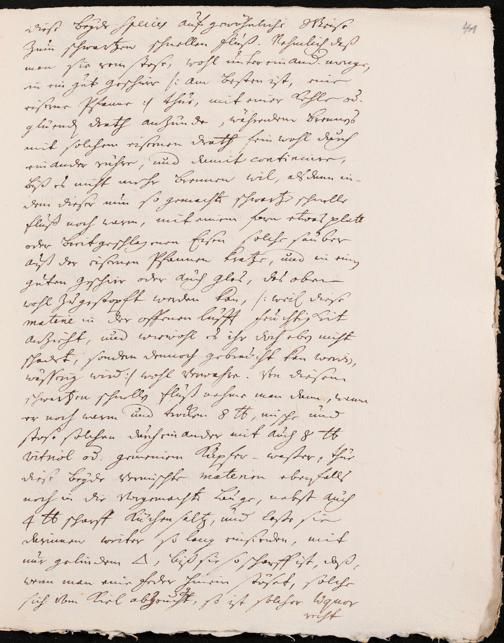 441
diese beyde species auf gewöhnliche Weise
zum schwartzen schnellen Fluß. Nehmlich daß
man sie vermenge, wohl untereinand. menge,
in ein gut geschirr /: am besten ist, eine
eiserne Pfanne :/ thue, mit einer Kohle od.
glüend drath anzünde, währenden brennens
mit solchem eisernen drath fein wohl durch
einander rühre, und damit continuire,
biß es nicht mehr brennen wil, alsdann
dem dieser nun so gemachte schwartze schnelle
Fluß noch warm, mit einem forn etwas platt
oder breitgeschlagenen Eisen solche sauber
auß der eisernen Pfannen kratze, und in ein
gutes geschirr oder auch glas, das oben
wohl zugestopft werden kan, /: weil diese
materie in der offenen lufft feuchtigkeit
anziecht, und wiewohl es ihr doch eben nicht
schadet, sondern dennoch gebraucht kan werden,
wässerig wird :/ wohl verwahre. Von diesem
schwartzen schnellen Fluß nehme man dann, wann
er noch warm und trocken 8 ℔, mische und
stoße solchen durcheinander mit auch 8 ℔
Vitriol od. gemeinen Kupfer-wasser, thue
diese beyde vermischte materien ebenfalls
noch in die vorgemachte lauge, nebst auch
4 ℔ scharff Küchensaltz, und laße sie
darinnen weiter so lang einsieden, mit
nur gelindem 🜂, biß sie so scharff ist, daß,
wenn man eine feder hinein stöset, solche
sich vom Kiel ab, so ist solcher liquor
recht